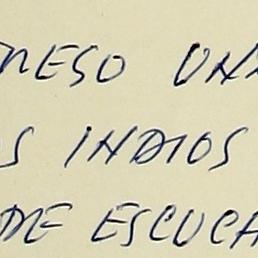 RESO UN
S INDIOS
DE ESCUCA